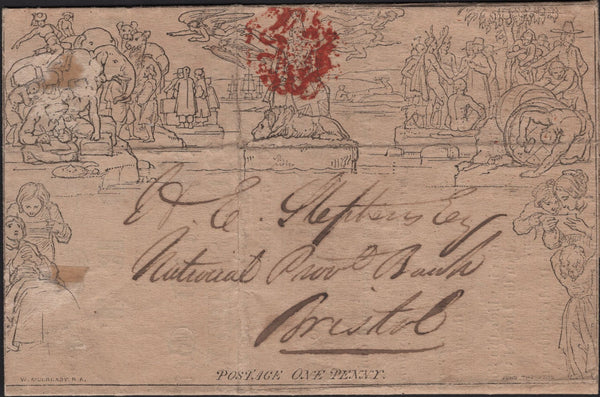 H. E. Stephens Esq
National Provl. Bank
Bristol
POSTAGE ONE PENNY.
W. MULREADY. R.A.
JOHN THOMPSON